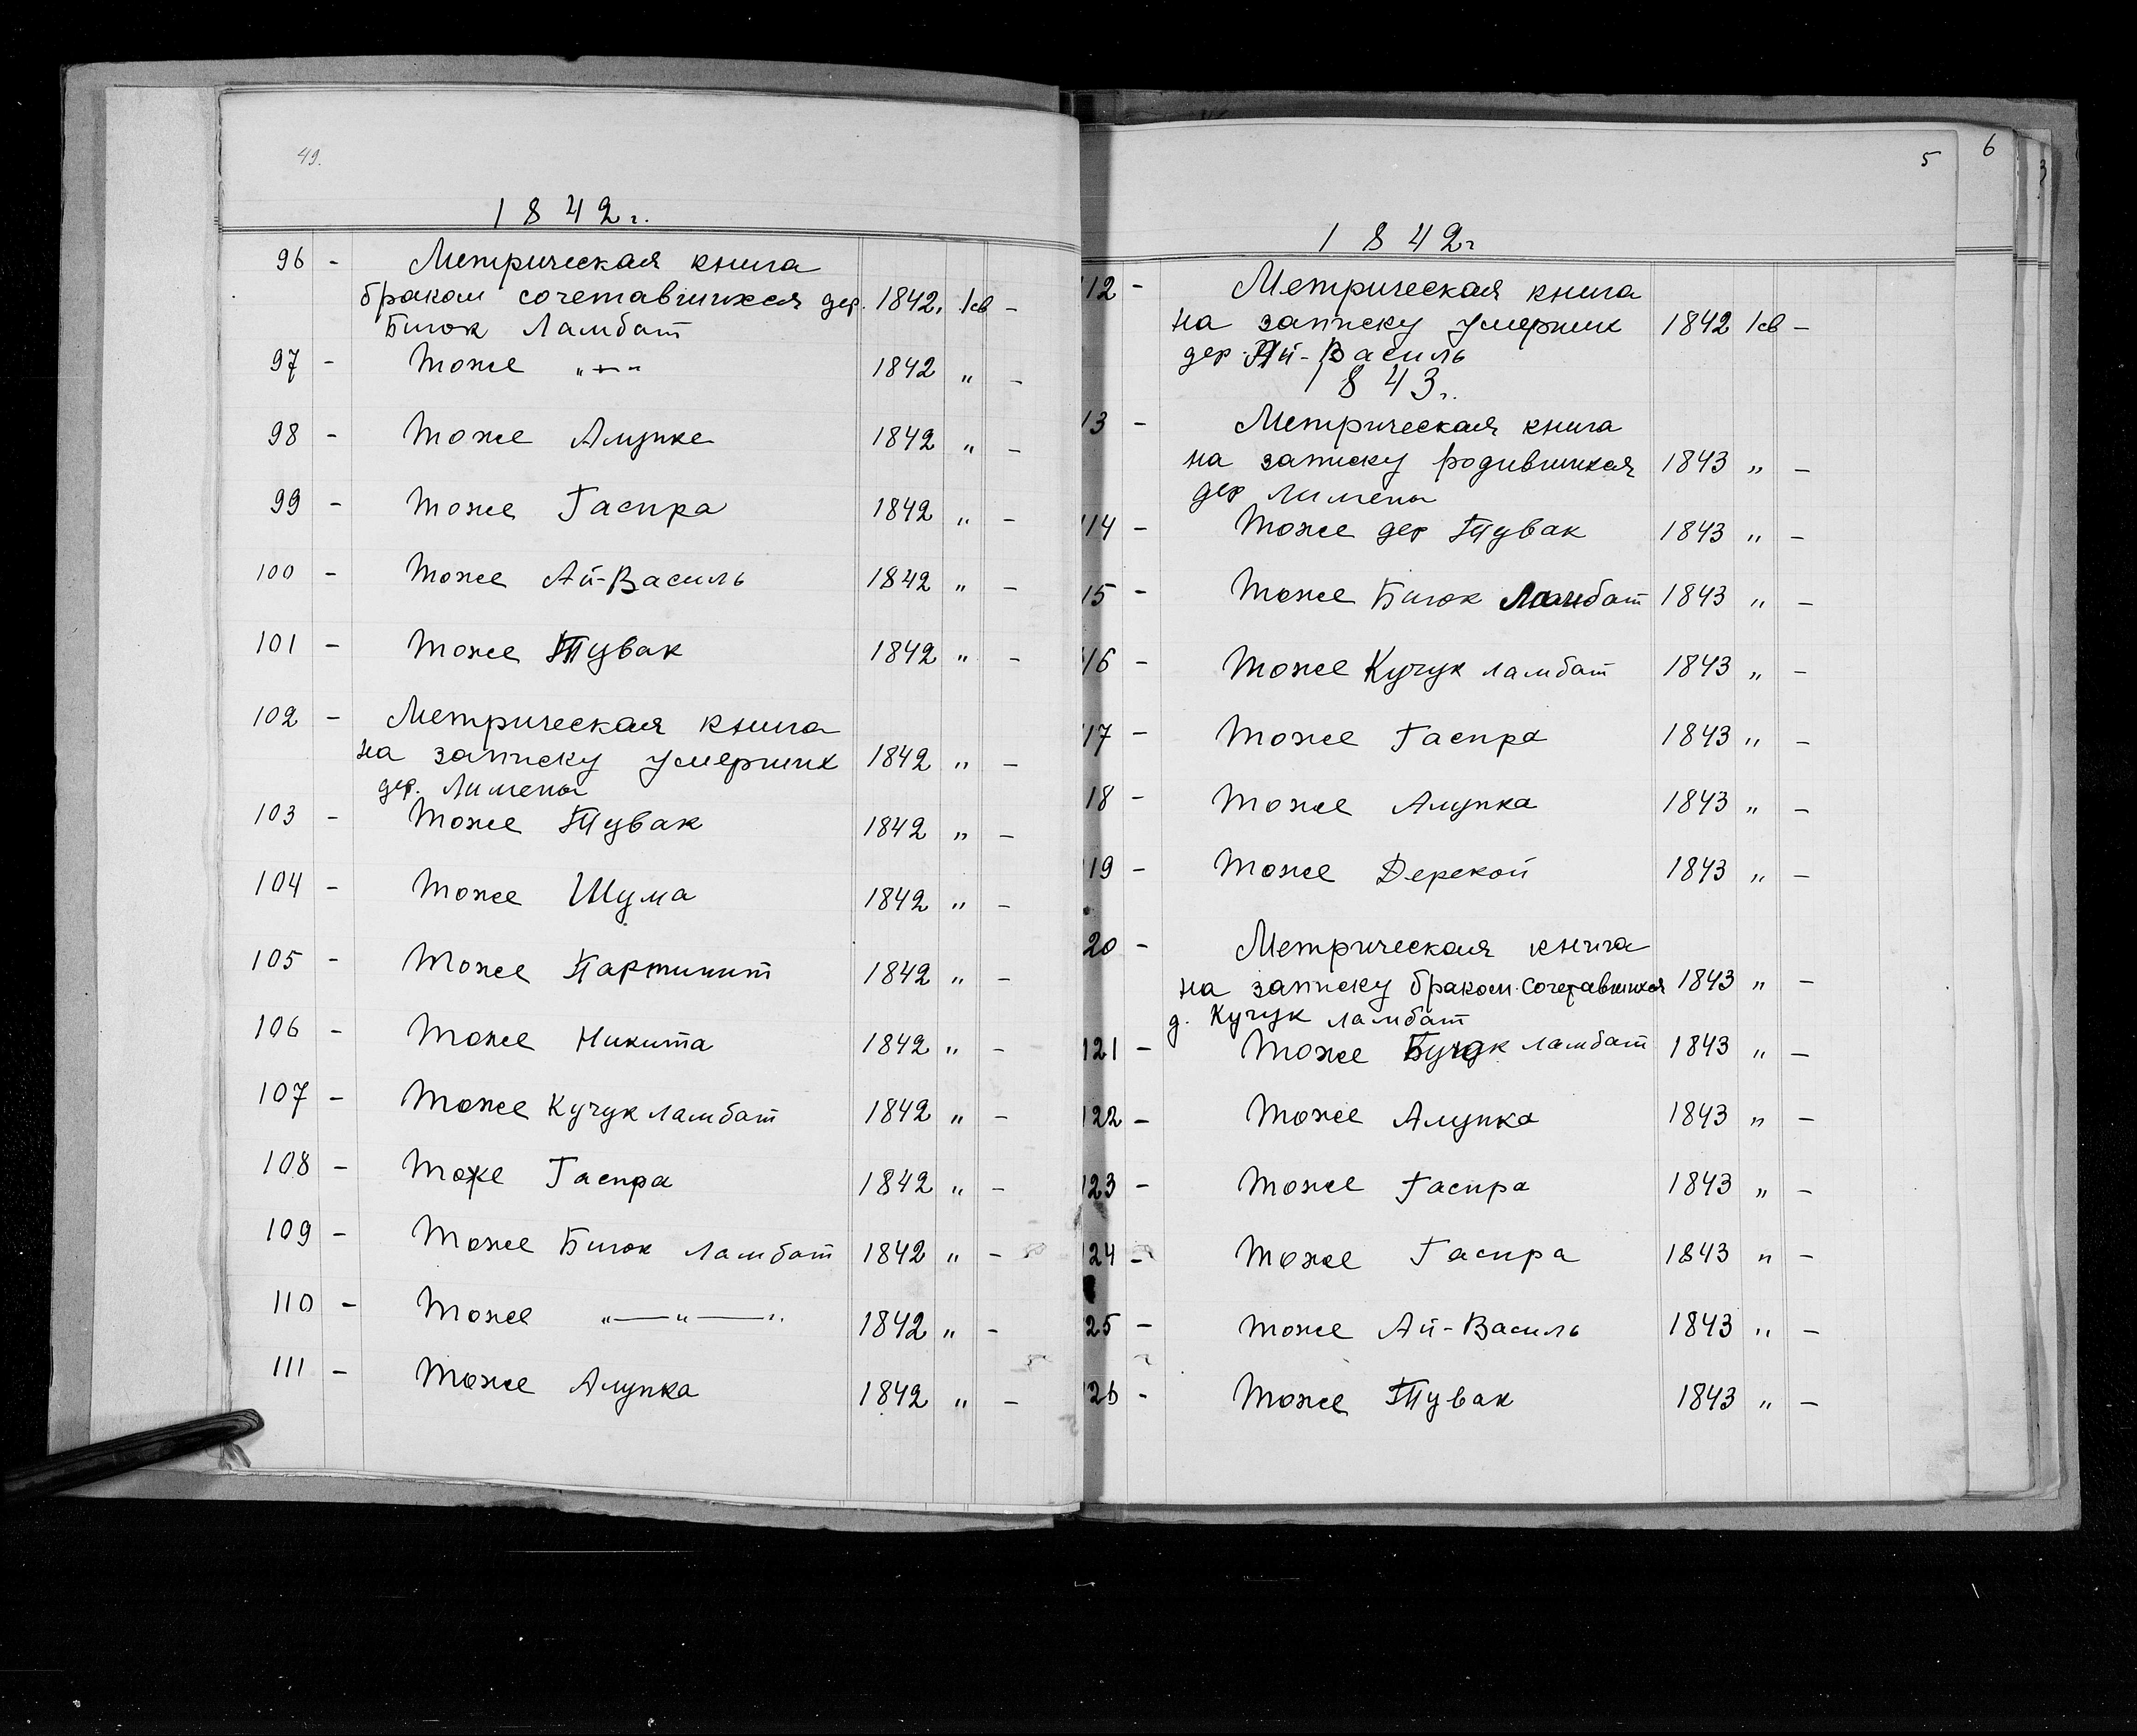 49.
1842г.
96 - Метрическая книга
браком сочетавшихся дер. 1842г. 1св -
Биюк Ламбат
97 - Тоже "-"-" 1842 " -
98 - Тоже Алупке 1842 " -
99 - Тоже Гаспра 1842 " -
100 - Тоже Ай-Василь 1842 " -
101 - Тоже Тувак 1842 " -
102 - Метрическая книга
на записку умерших 1842 " -
дер. Лимена
103 - Тоже Тувак 1842 " -
104 - Тоже Шума 1842 " -
105 - Тоже Партинит 1842 " -
106 - Тоже Никита 1842 " -
107 - Тоже Кучук Ламбат 1842 " -
108 - Тоже Гаспра 1842 " -
109 - Тоже Биюк Ламбат 1842 " -
110 - Тоже "—"—" 1842 " -
111 - Тоже Алупка 1842 " -
5
6
1842г
12 - Метрическая книга
на записку умерших 1842 1св -
дер. Ай-Василь
1843г.
13 - Метрическая книга
на записку родившихся 1843 " -
дер Лимена
14 - Тоже дер Тувак 1843 " -
15 - Тоже Биюк Ламбат 1843 " -
16 - Тоже Кучук ламбат 1843 " -
17 - Тоже Гаспра 1843 " -
18 - Тоже Алупка 1843 " -
19 - Тоже Дерекой 1843 " -
20 - Метрическая книга
на записку браком сочетавшихся 1843 " -
д. Кучук ламбат
121 - Тоже ламбат 1843 " -
122 - Тоже Алупка 1843 " -
123 - Тоже Гаспра 1843 " -
124 - Тоже Гаспра 1843 " -
25 - Тоже Ай-Василь 1843 " -
126 - Тоже Тувак 1843 " -